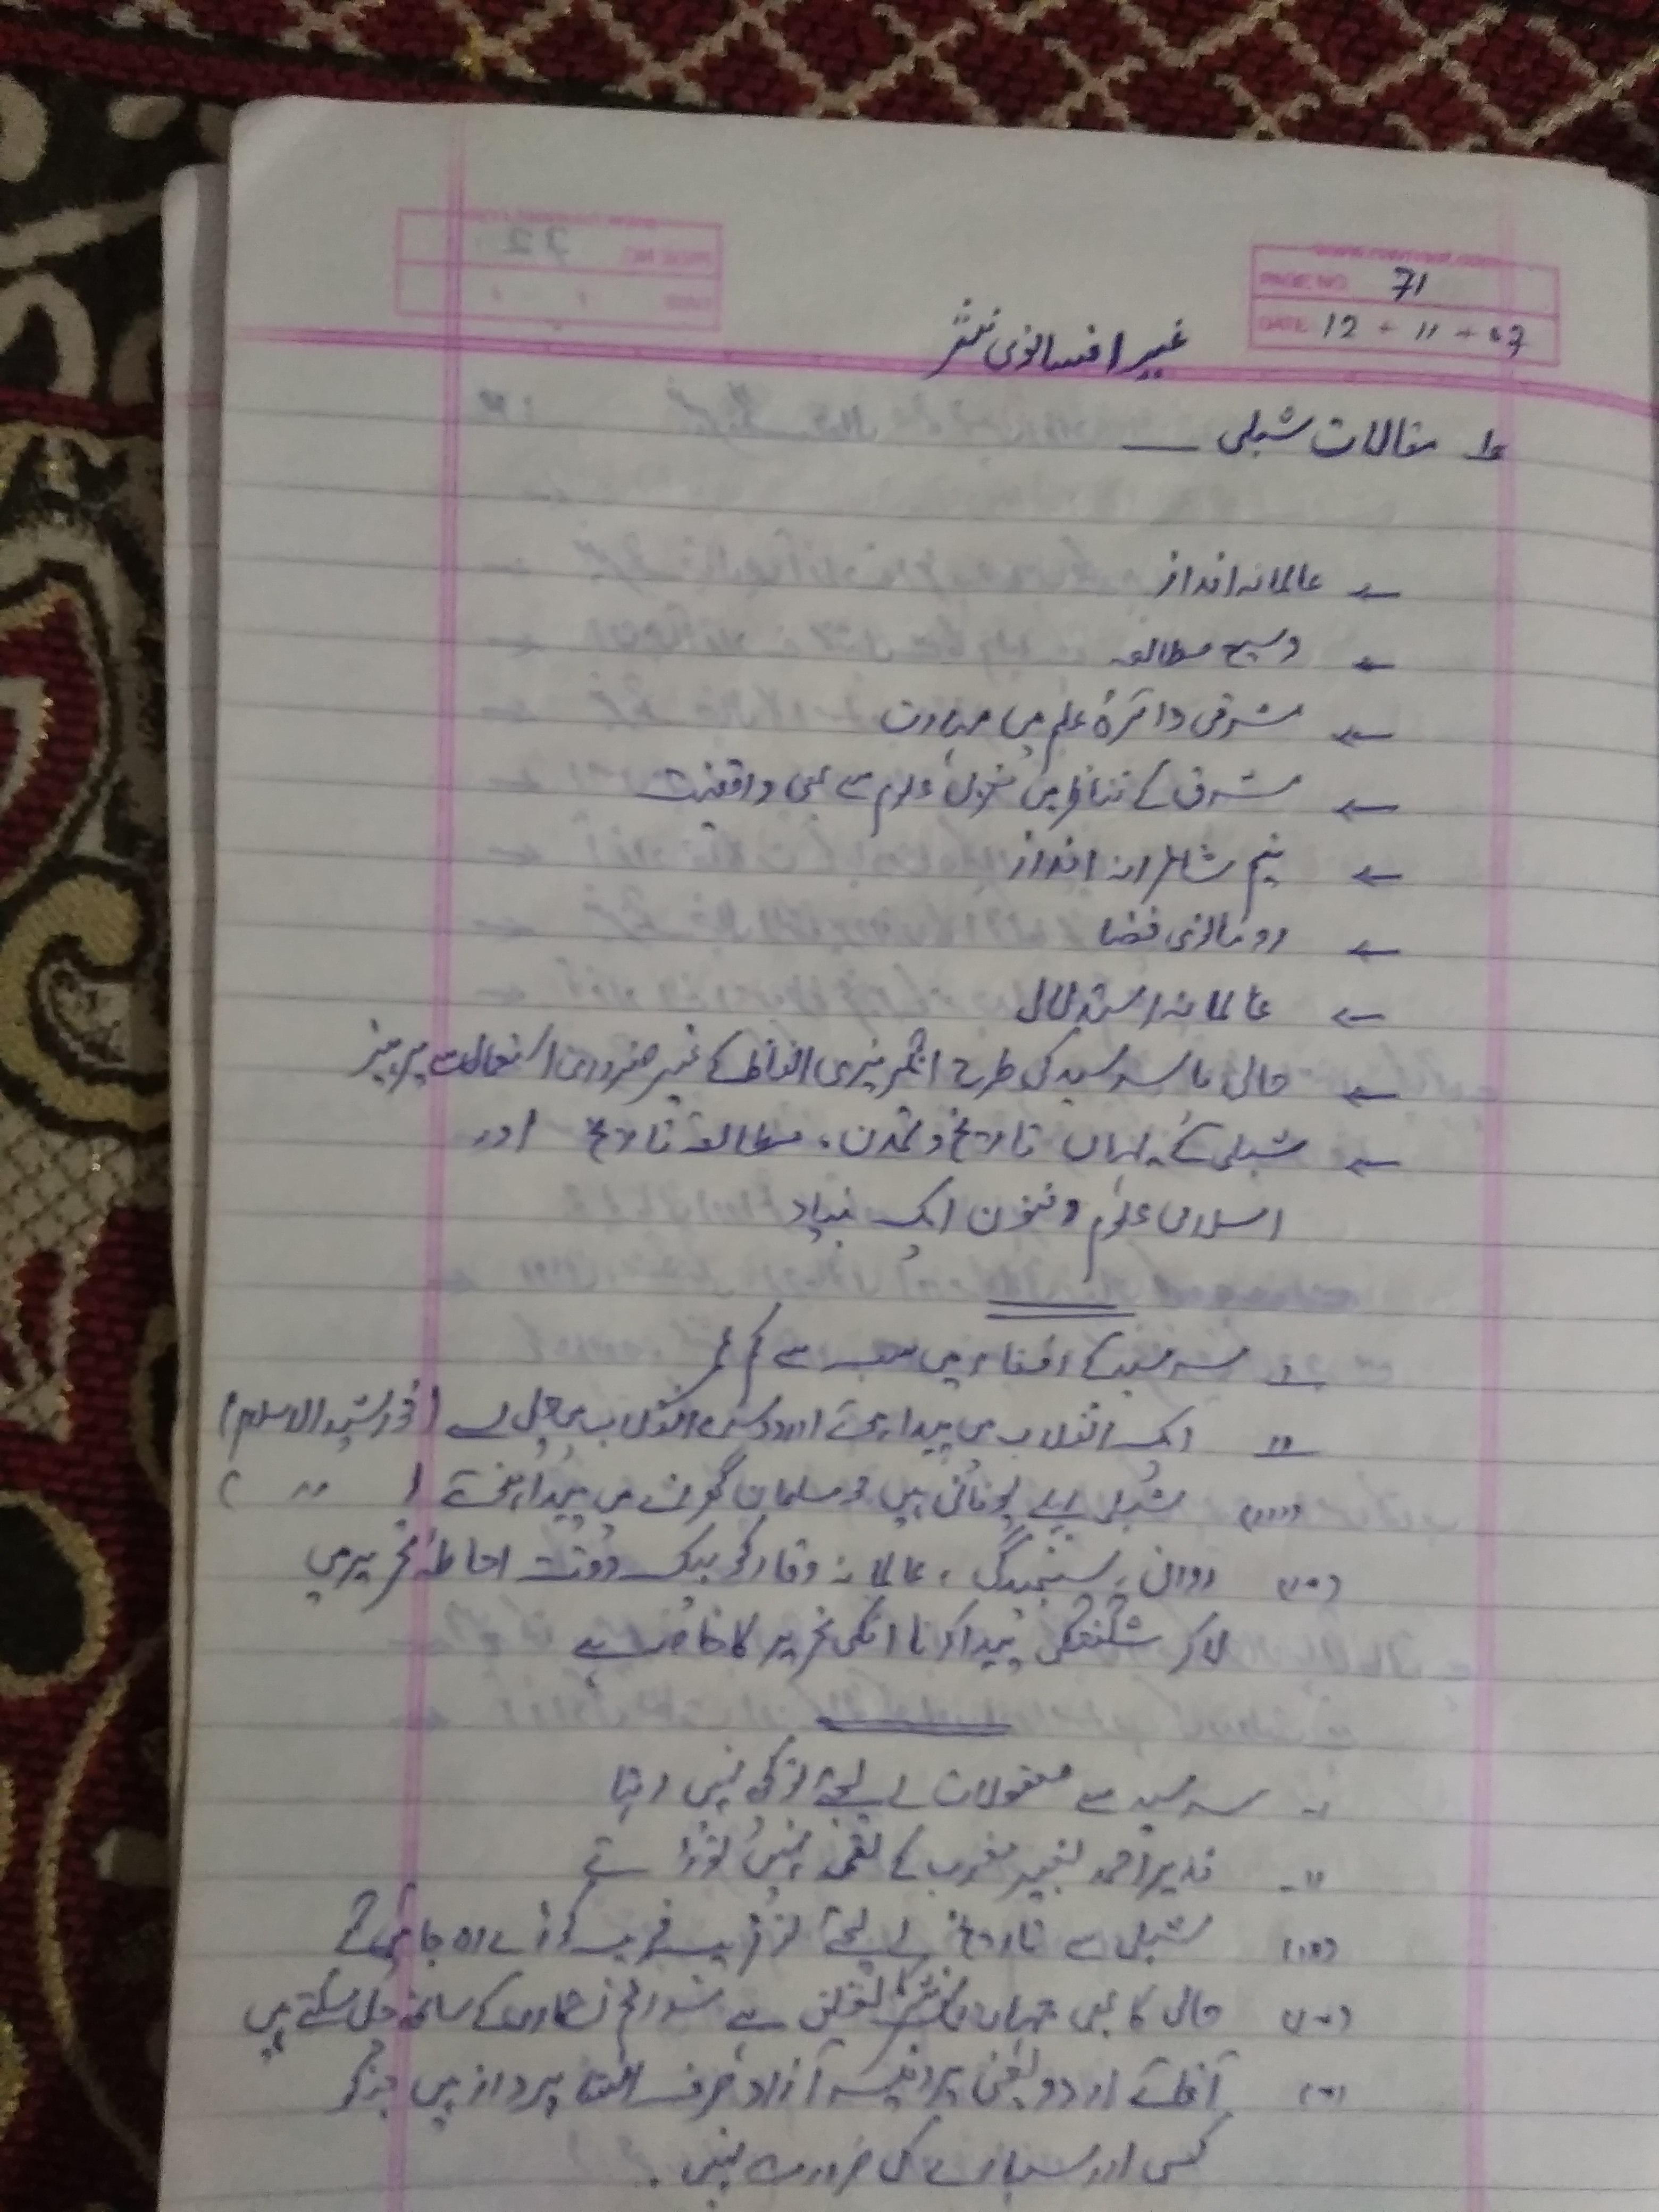 PAGE NO. 71
DATE: 12 - 11 - 07
غیر افسانوی نثر
۱۔ مقالات شبلی ـــ
← عالمانہ انداز
← وسیع مطالعہ
← مشرقی دائرۂ علم میں مہارت
← مشرق کے تناظر میں مغربی علوم سے بھی واقفیت
← نیم شاعرانہ انداز
← رومانوی فضا
← عالمانہ استدلال
← حالی یا سرسید کی طرح انگریزی الفاظ کے غیر ضروری استعمال سے پرہیز
← شبلی کے یہاں تاریخ و تمدن، مطالعۂ تاریخ اور
اسلامی علوم و فنون ایک بنیاد
۱۔ سرسید کے رفقاء میں سب سے کم عمر
۲۔ ایک انقلاب میں پیدا ہوئے اور دوسرے انقلاب میں چل بسے (خورشید الاسلام)
(۳) شبلی پہلے یونانی ہیں جو مسلمان گھرانے میں پیدا ہوئے ( 〃 )
(۴) روانی، سنجیدگی، عالمانہ وقار کو بیک وقت احاطۂ تحریر میں
لا کر شگفتگی پیدا کرنا انکی تحریر کا خاصہ ہے
۱۔ سرسید سے معقولات لے لیجئے تو کچھ نہیں رہتا
۲۔ نذیر احمد بغیر مذہب کے لقمہ نہیں توڑتے
(۳) شبلی سے تاریخ لے لیجئے تو قریب قریب کورے رہ جائیں گے
(۴) حالی کا بھی جہاں تک نثر کا تعلق ہے سوانح نگاری کے ساتھ چل سکتے ہیں
(۵) آقائے اردو یعنی پروفیسر آزاد صرف انشا پرداز ہیں جنکو
کسی اور سہارے کی ضرورت نہیں۔